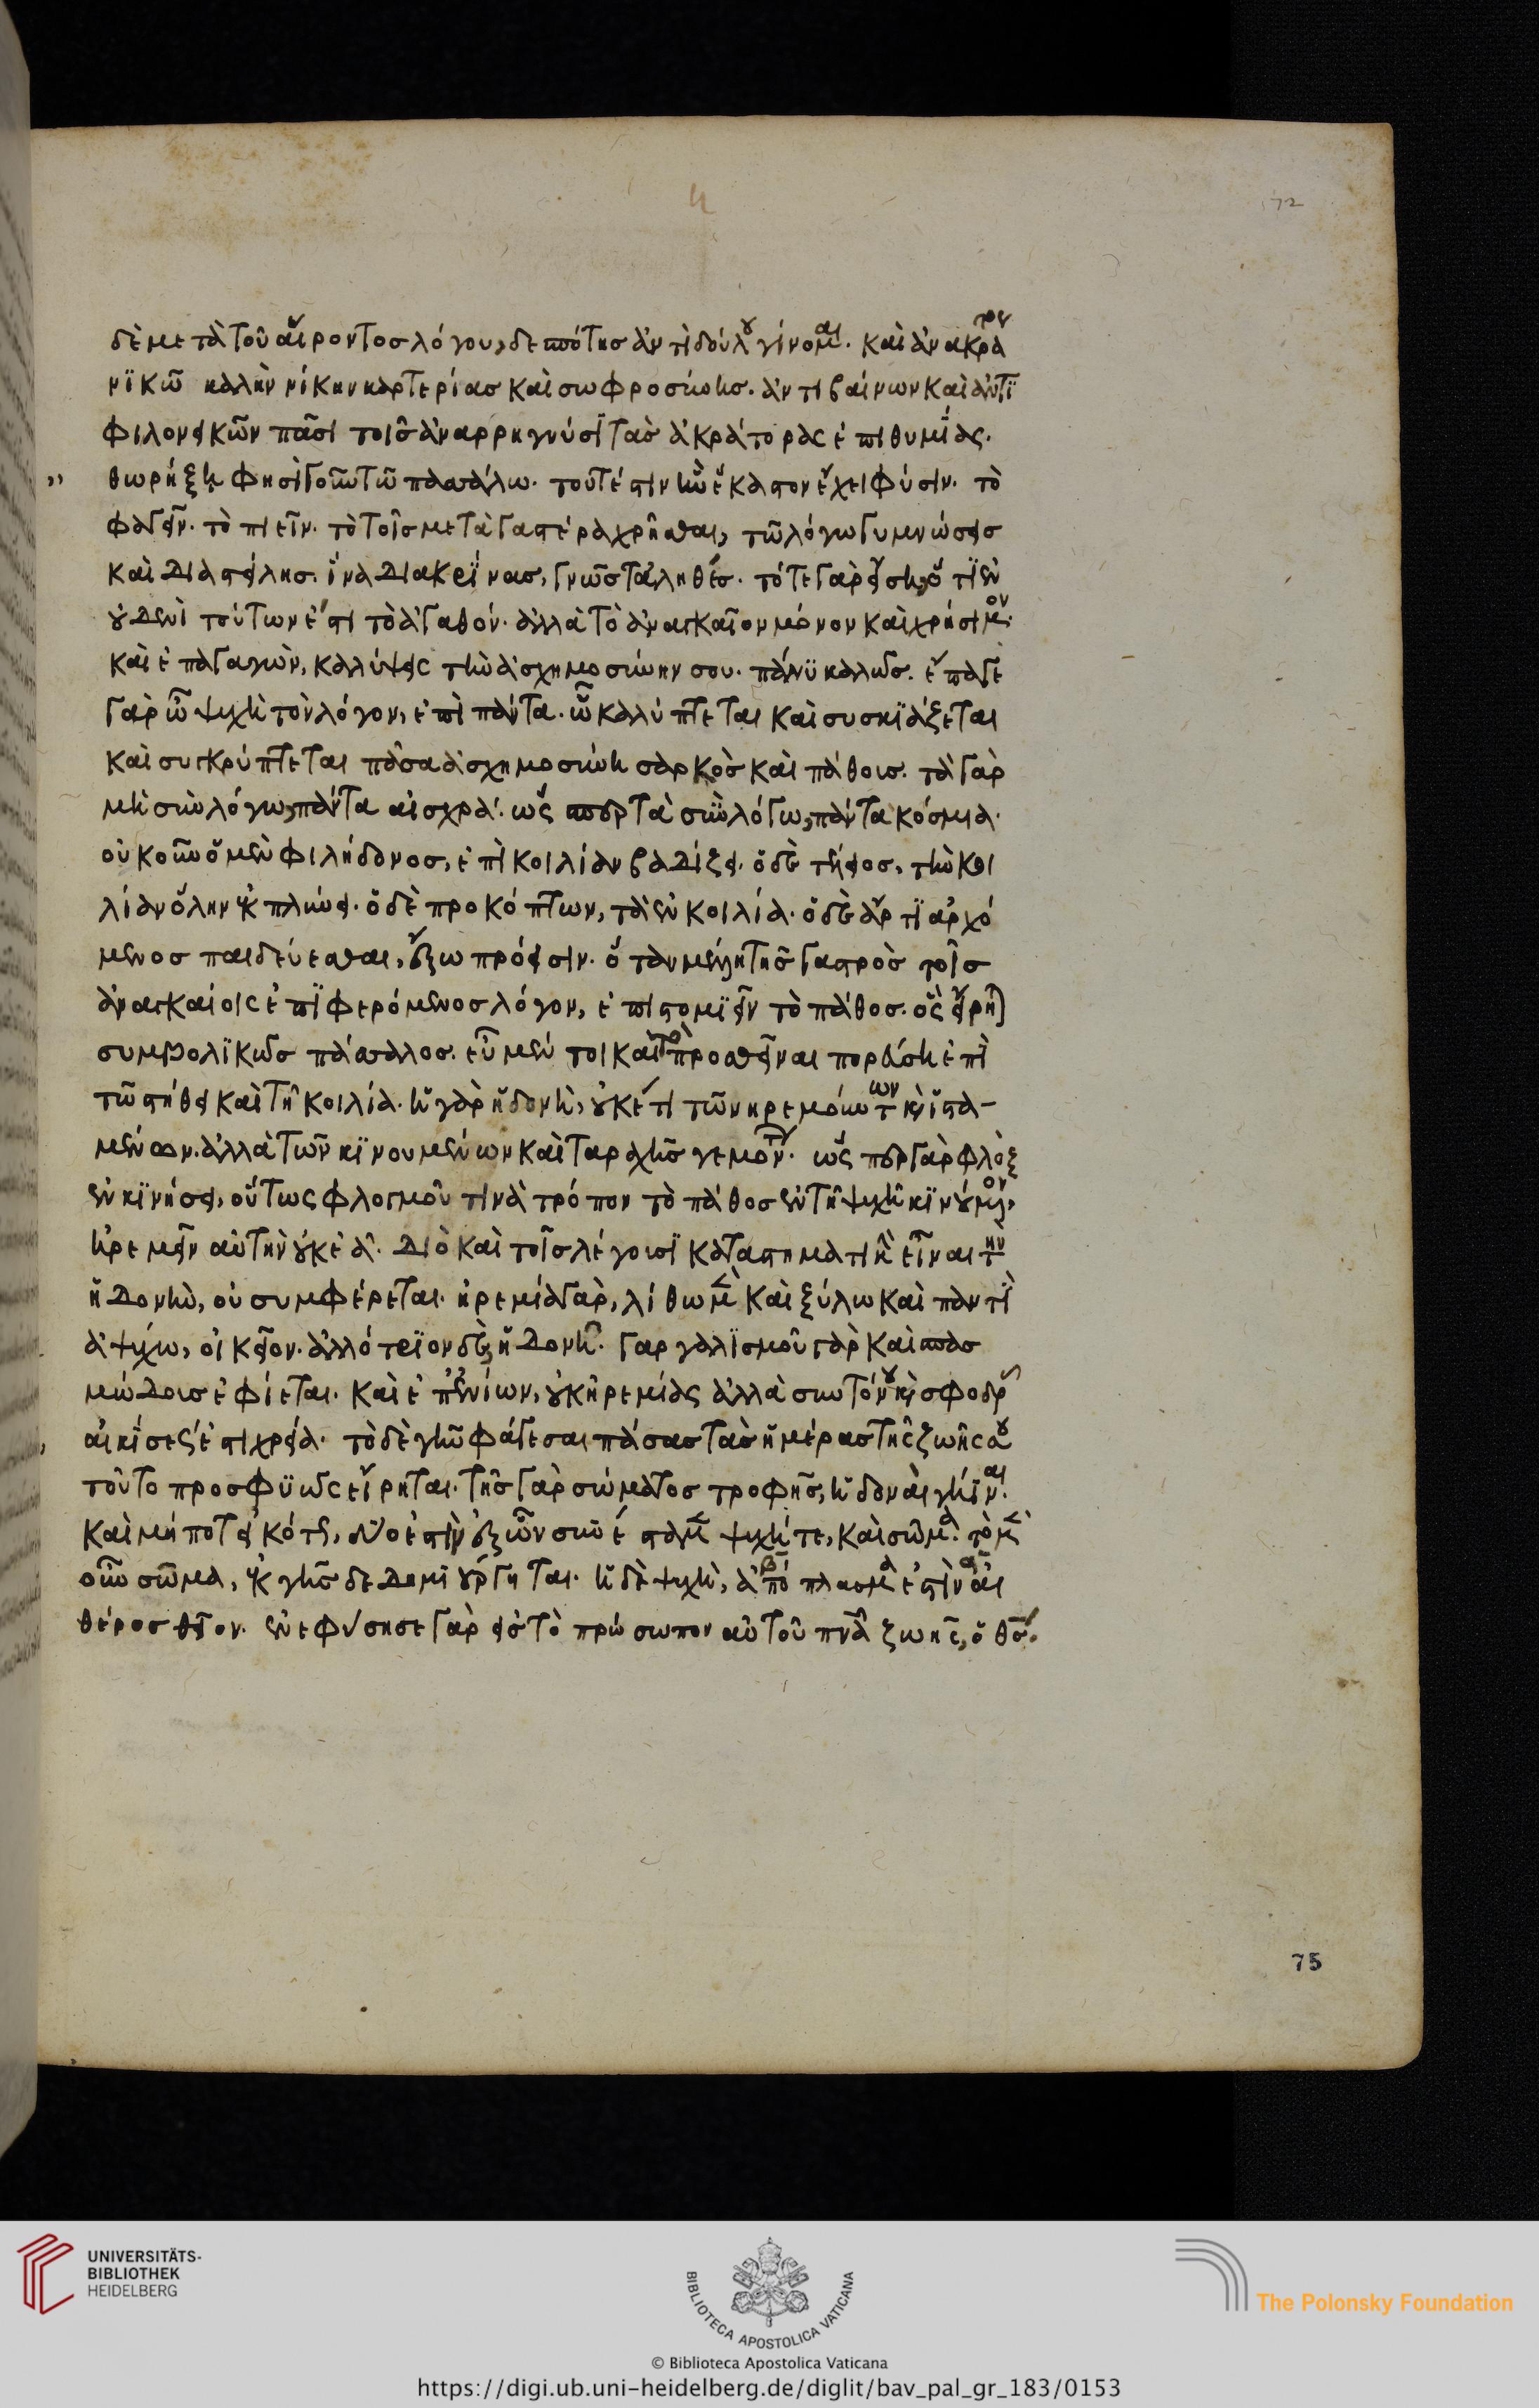 δὲ μετὰ τοῦ αἵροντος λόγου, δεσπότης ἀντὶ δούλου γίνομαι. καὶ
νϊκῶ καλὴν νίκην καρτερίας καὶ σωφροσύνης. ἀντιβαίνων καὶ ἀντϊ
φιλονεικῶν πᾶσι τοῖς ἀναρρηγνύσϊ τὰς ἀκράτορας ἐπιθυμΐας.
" θωρήξη φησὶ γοῦν τῶ πασσάλω. τουτέστιν ἣν ἕκαστον ἔχει φύσιν. τὸ
φαγεῖν. τὸ πιεῖν. τὸ τοῖς μετὰ γαστέρα χρῆσθαι, τῶ λόγω γυμνώσεις
καὶ διαστείλης. ἵνα διακρίνας, γνῶς τἀληθές. τότε γὰρ εἴση, ὅτϊ ἐν
οὐδενὶ τούτων ἔστι τὸ ἀγαθόν. ἀλλὰ τὸ ἀναγκαῖον μόνον καὶ χρήσιμον.
καὶ ἐπαγαγὼν, καλύψεις τὴν ἀσχημοσύνην σου. πάνϋ καλῶς. ἔπαγε
γὰρ ὦ ψυχὴ τὸν λόγον, ἐπὶ πάντα. ὧ καλύπτεται καὶ συσκϊάζεται
καὶ συγκρύπτεται πᾶσα ἀσχημοσύνη σαρκὸς καὶ πάθους. τὰ γὰρ
μὴ σὺν λόγω, πάντα αἰσχρά. ὥσπερ τὰ σὺν λόγω, πάντα κόσμια.
οὐκοῦν ὁ μὲν φιλήδονος, ἐπὶ κοιλίαν βαδίζει. ὁ δὲ τέλειος, τὴν κοι
λίαν ὅλην ἐκπλύνει. ὁ δὲ προκόπτων, τὰ ἐν κοιλία. ὁ δὲ ἄρτϊ ἀρχό
μενος παιδεύεσθαι, ἔξω πρόεισιν. ὅταν μέλλη τῆς γαστρὸς τοῖς
ἀναγκαίοις ἐπϊφερόμενος λόγον, ἐπιστομϊεῖν τὸ πάθος. ὃς εἴρηται
συμβολϊκῶς πάσσαλος. εὖ μέντοι καὶ τὸ προσθεῖναι πορεύση ἐπὶ
τῶ στήθει καὶ τῆ κοιλία. ἡ γὰρ ἡδονὴ, οὐκ ἔστι τῶν ἠρεμούντων καὶ ἱστα-
μένων. ἀλλὰ τῶν κϊνουμένων καὶ ταραχῆς γεμόντων. ὥσπερ γὰρ φλὸξ
ἐν κϊνήσει, οὕτως φλογμοῦ τινὰ τρόπον τὸ πάθος ἐν τῆ ψυχῆ κϊνούμενον,
ἠρεμεῖν αὐτὴν οὐκ ἐᾶ. διὸ καὶ τοῖς λέγουσϊ καταστηματικὴν εἶναι τὴν
ἡδονὴν, οὐ συμφέρεται. ἠρεμία γὰρ, λίθω μὲν καὶ ξύλω καὶ παντϊ
ἀψύχω, οἰκεῖον. ἀλλότρϊον δὲ, ἡδονῆ. γαργαλϊσμοῦ γὰρ καὶ σπασ
μώδους ἐφίεται. καὶ ἐπ' ἐνίων, οὐκ ἠρεμίας ἀλλὰ συντόνου καὶ σφοδρᾶς
, αἰκίσεώς ἐστι χρεία. τὸ δὲ γῆν φάγεσαι πάσας τὰς ἡμέρας τῆς ζωῆς σου
τοῦτο προσφϋῶς εἴρηται. τῆς γὰρ σώματος τροφῆς, ἡδοναὶ γήϊναι.
καὶ μήποτ' εἰκότως, δύο ἐστὶν ἐξ ὧν συνέσταμεν ψυχή τε, καὶ σῶμα. τὸ μὲν
οὖν σῶμα, ἐκ γῆς δεδημιούργηται. ἡ δὲ ψυχὴ, ἀπόσπασμα ἐστὶν αἰ
θέρος θεῖον. ἐνεφύσησε γὰρ εἰς τὸ πρόσωπον αὐτοῦ πνᾶ ζωῆς, ὁ θς.
75
UNIVERSITÄTS-
BIBLIOTHEK
HEIDELBERG
BIBLIOTECA APOSTOLICA VATICANA
The Polonsky Foundation
© Biblioteca Apostolica Vaticana
https://digi.ub.uni-heidelberg.de/diglit/bav_pal_gr_183/0153